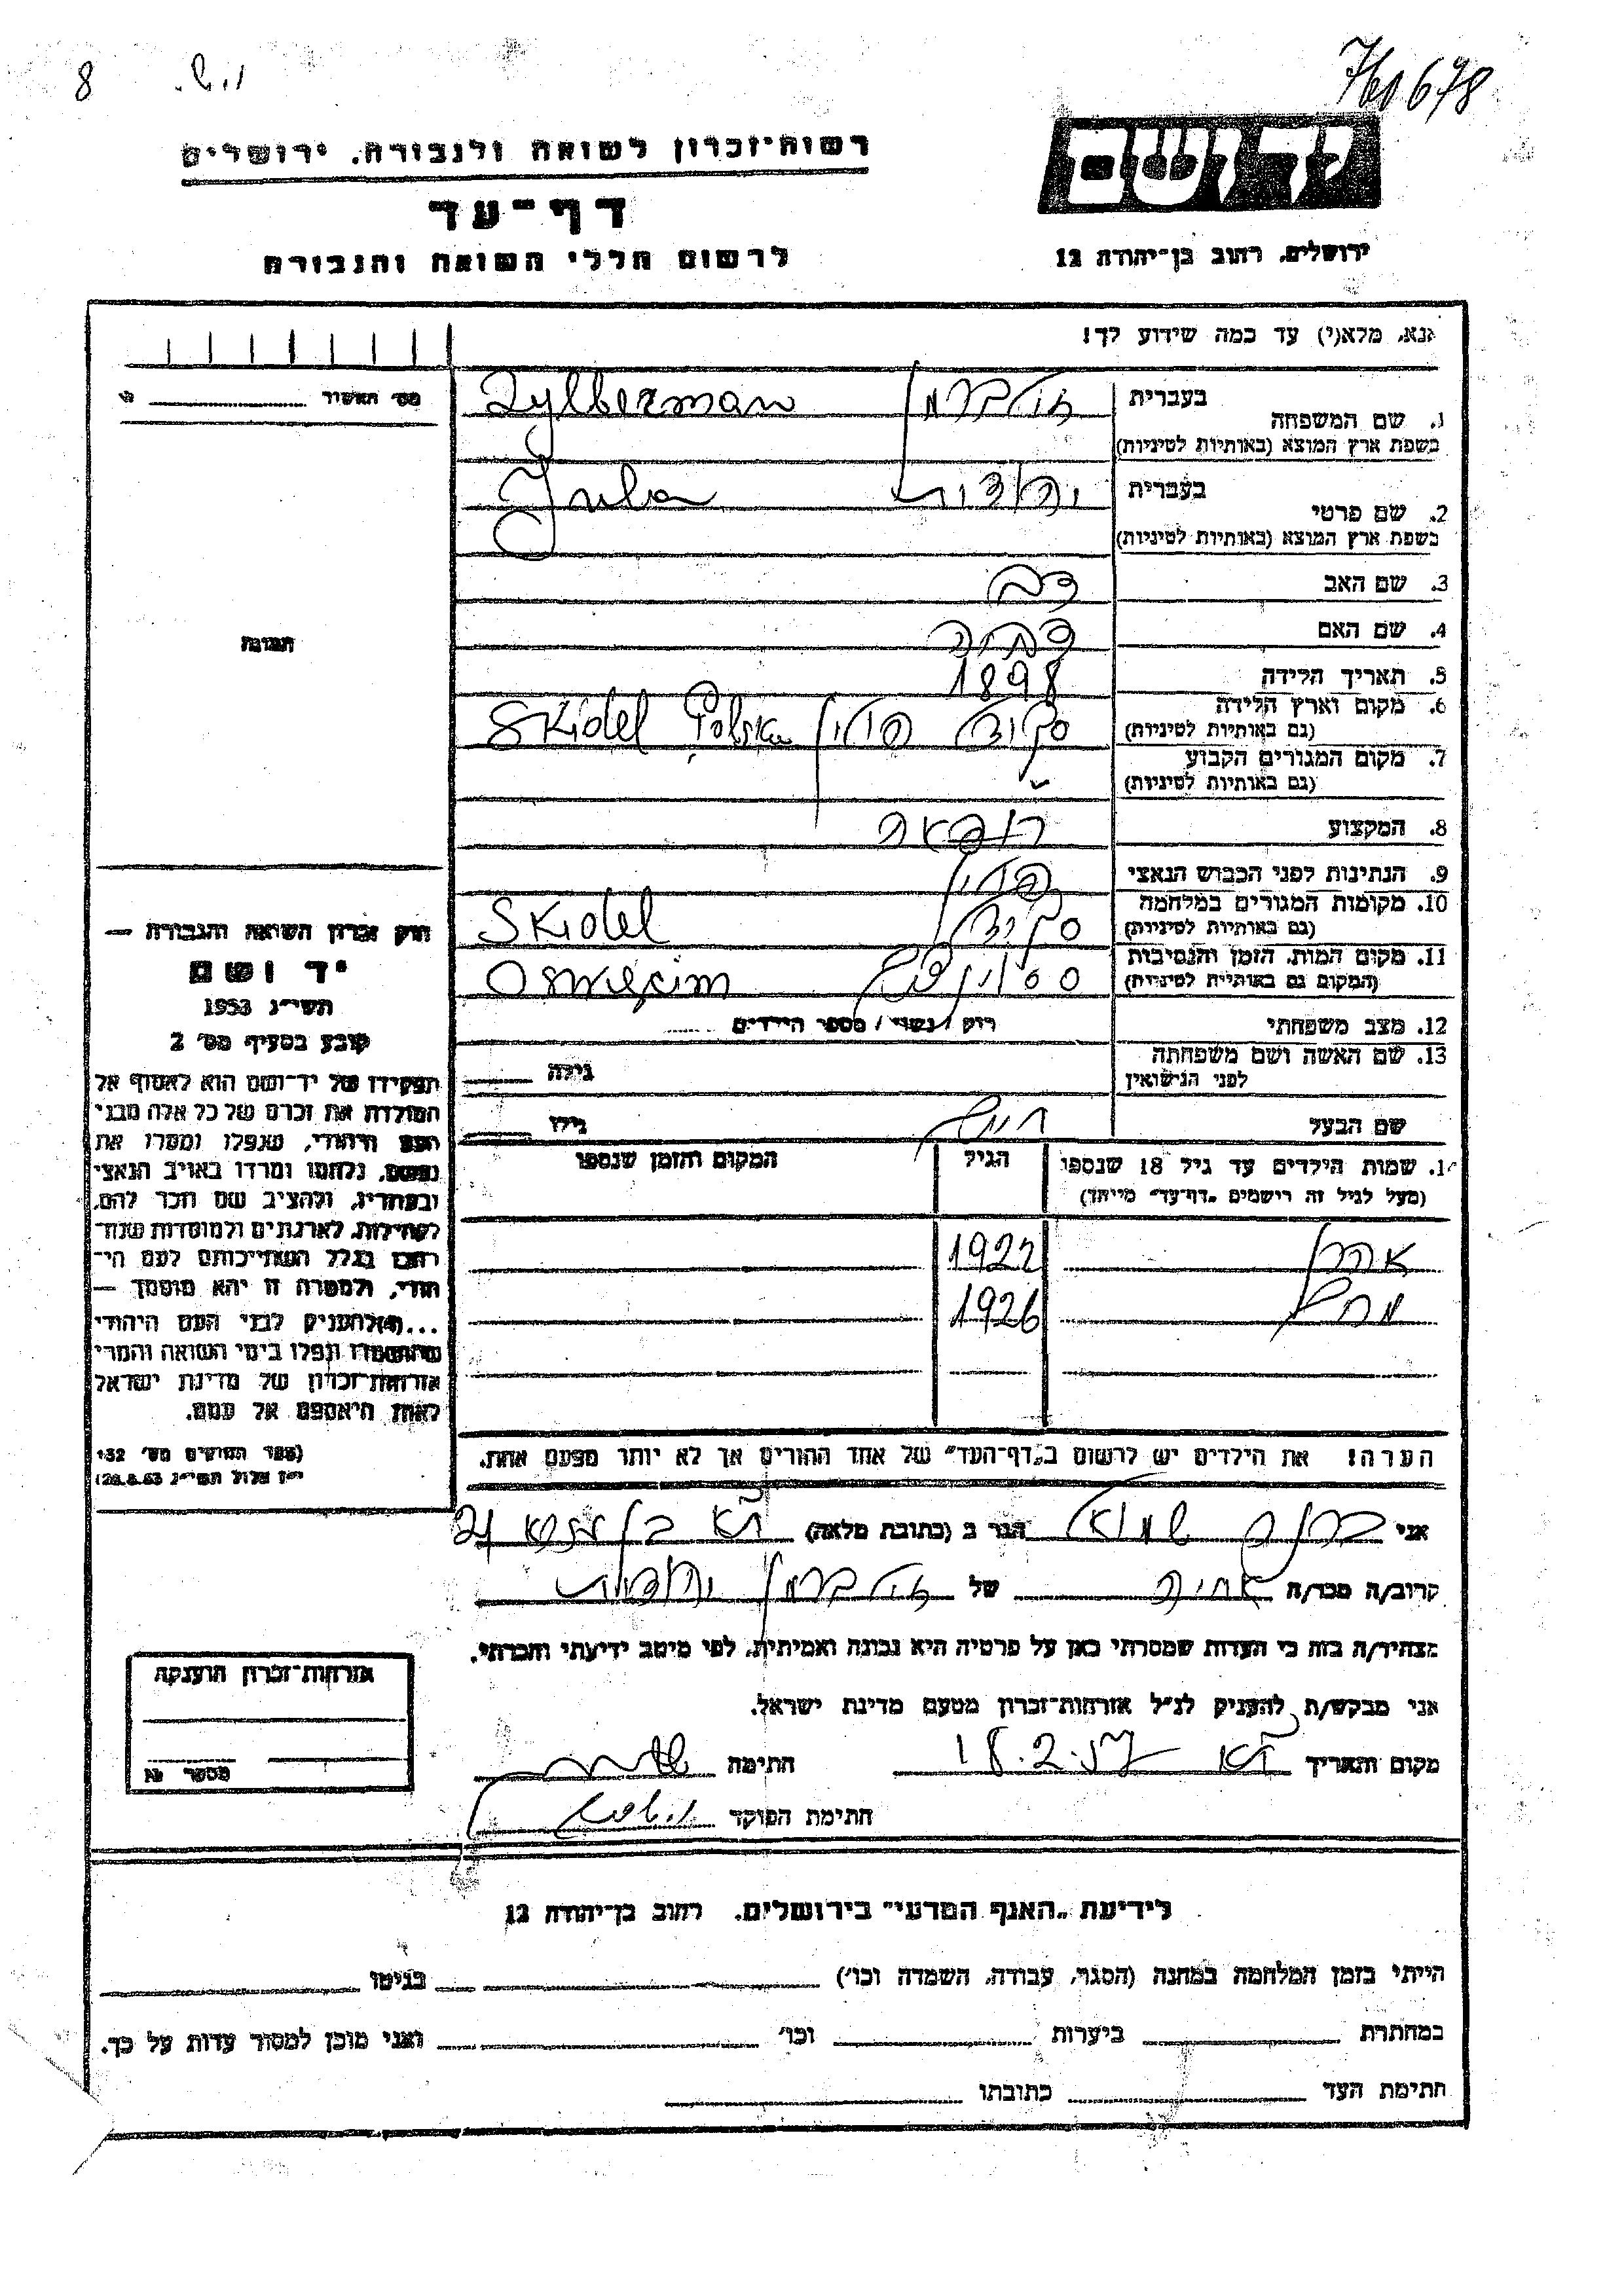 8
ו.ש.
רשות־זכרון לשואה ולגבורה. ירושלים
דף־עד
לרשום חללי השואה והגבורה
יד ושם
ירושלים, רחוב בן־יהודה 12
אנא, מלא(י) עד כמה שידוע לך!
מס׳ תאשור
1. שם המשפחה בעברית זילברמן Zylberman
בשפת ארץ המוצא (באותיות לטיניות)
2. שם פרטי בעברית יהודית Juha
בשפת ארץ המוצא (באותיות לטיניות)
3. שם האב
4. שם האם
5. תאריך הלידה 1898
6. מקום וארץ הלידה סקידל פולין Skidel Polska
(גם באותיות לטיניות)
7. מקום המגורים הקבוע
(גם באותיות לטיניות)
8. המקצוע
9. הנתינות לפני הכבוש הנאצי פולין
10. מקומות המגורים במלחמה סקידל Skidel
(גם באותיות לטיניות)
11. מקום המות, הזמן והנסיבות Oswięcim
(המקום גם באותיות לטיניות)
12. מצב משפחתי רווק / נשוי / מספר הילדים
13. שם האשה ושם משפחתה גילה
לפני הנישואין
שם הבעל גילו
שמות הילדים עד גיל 18 שנספו הגיל המקום והזמן שנספו
(מעל לגיל זה רישמים "דף־עד" מיוחד)
אהרן 1922
1926
הערה! את הילדים יש לרשום ב"דף־העד" של אחד ההורים אך לא יותר מפעם אחת.
תמונה
חוק זכרון השואה והגבורה —
יד ושם
תשי״ג 1953
קובע בסעיף מס׳ 2
תפקידו של יד־ושם הוא לאסוף אל
המולדת את זכרם של כל אלה מבני
העם היהודי, שנפלו ומסרו את
נפשם, נלחמו ומרדו באויב הנאצי
ובעוזריו, ולהציב שם וזכר להם,
לקהילות, לארגונים ולמוסדות שנח־
רבו בגלל השתייכותם לעם הי־
הודי, ולמטרה זו יהא מוסמך —
...(4) להעניק לבני העם היהודי
שהושמדו ונפלו בימי השואה והמרי
אזרחות־זכרון של מדינת ישראל
לאות היאספם אל עמם.
(ספר החוקים מס׳ 132
י״ז אלול תשי״ג 28.8.53)
אני שמואל הגר ב (כתובת מלאה)
קרוב/ה מכר/ה של זילברמן יהודית
מצהיר/ה בזה כי העדות שמסרתי כאן על פרטיה היא נכונה ואמיתית, לפי מיטב ידיעתי והכרתי.
אני מבקש/ת להעניק לנ״ל אזרחות־זכרון מטעם מדינת ישראל.
מקום ותאריך 18.2.57 חתימה
חתימת הפוקד
אזרחות־זכרון הוענקה
מספר
לידיעת "האגף המדעי" בירושלים, רחוב בן־יהודה 12
הייתי בזמן המלחמה במחנה (הסגר, עבודה, השמדה וכו׳) בגיטו
במחתרת ביערות וכו׳ ואני מוכן למסור עדות על כך.
חתימת העד כתובתו